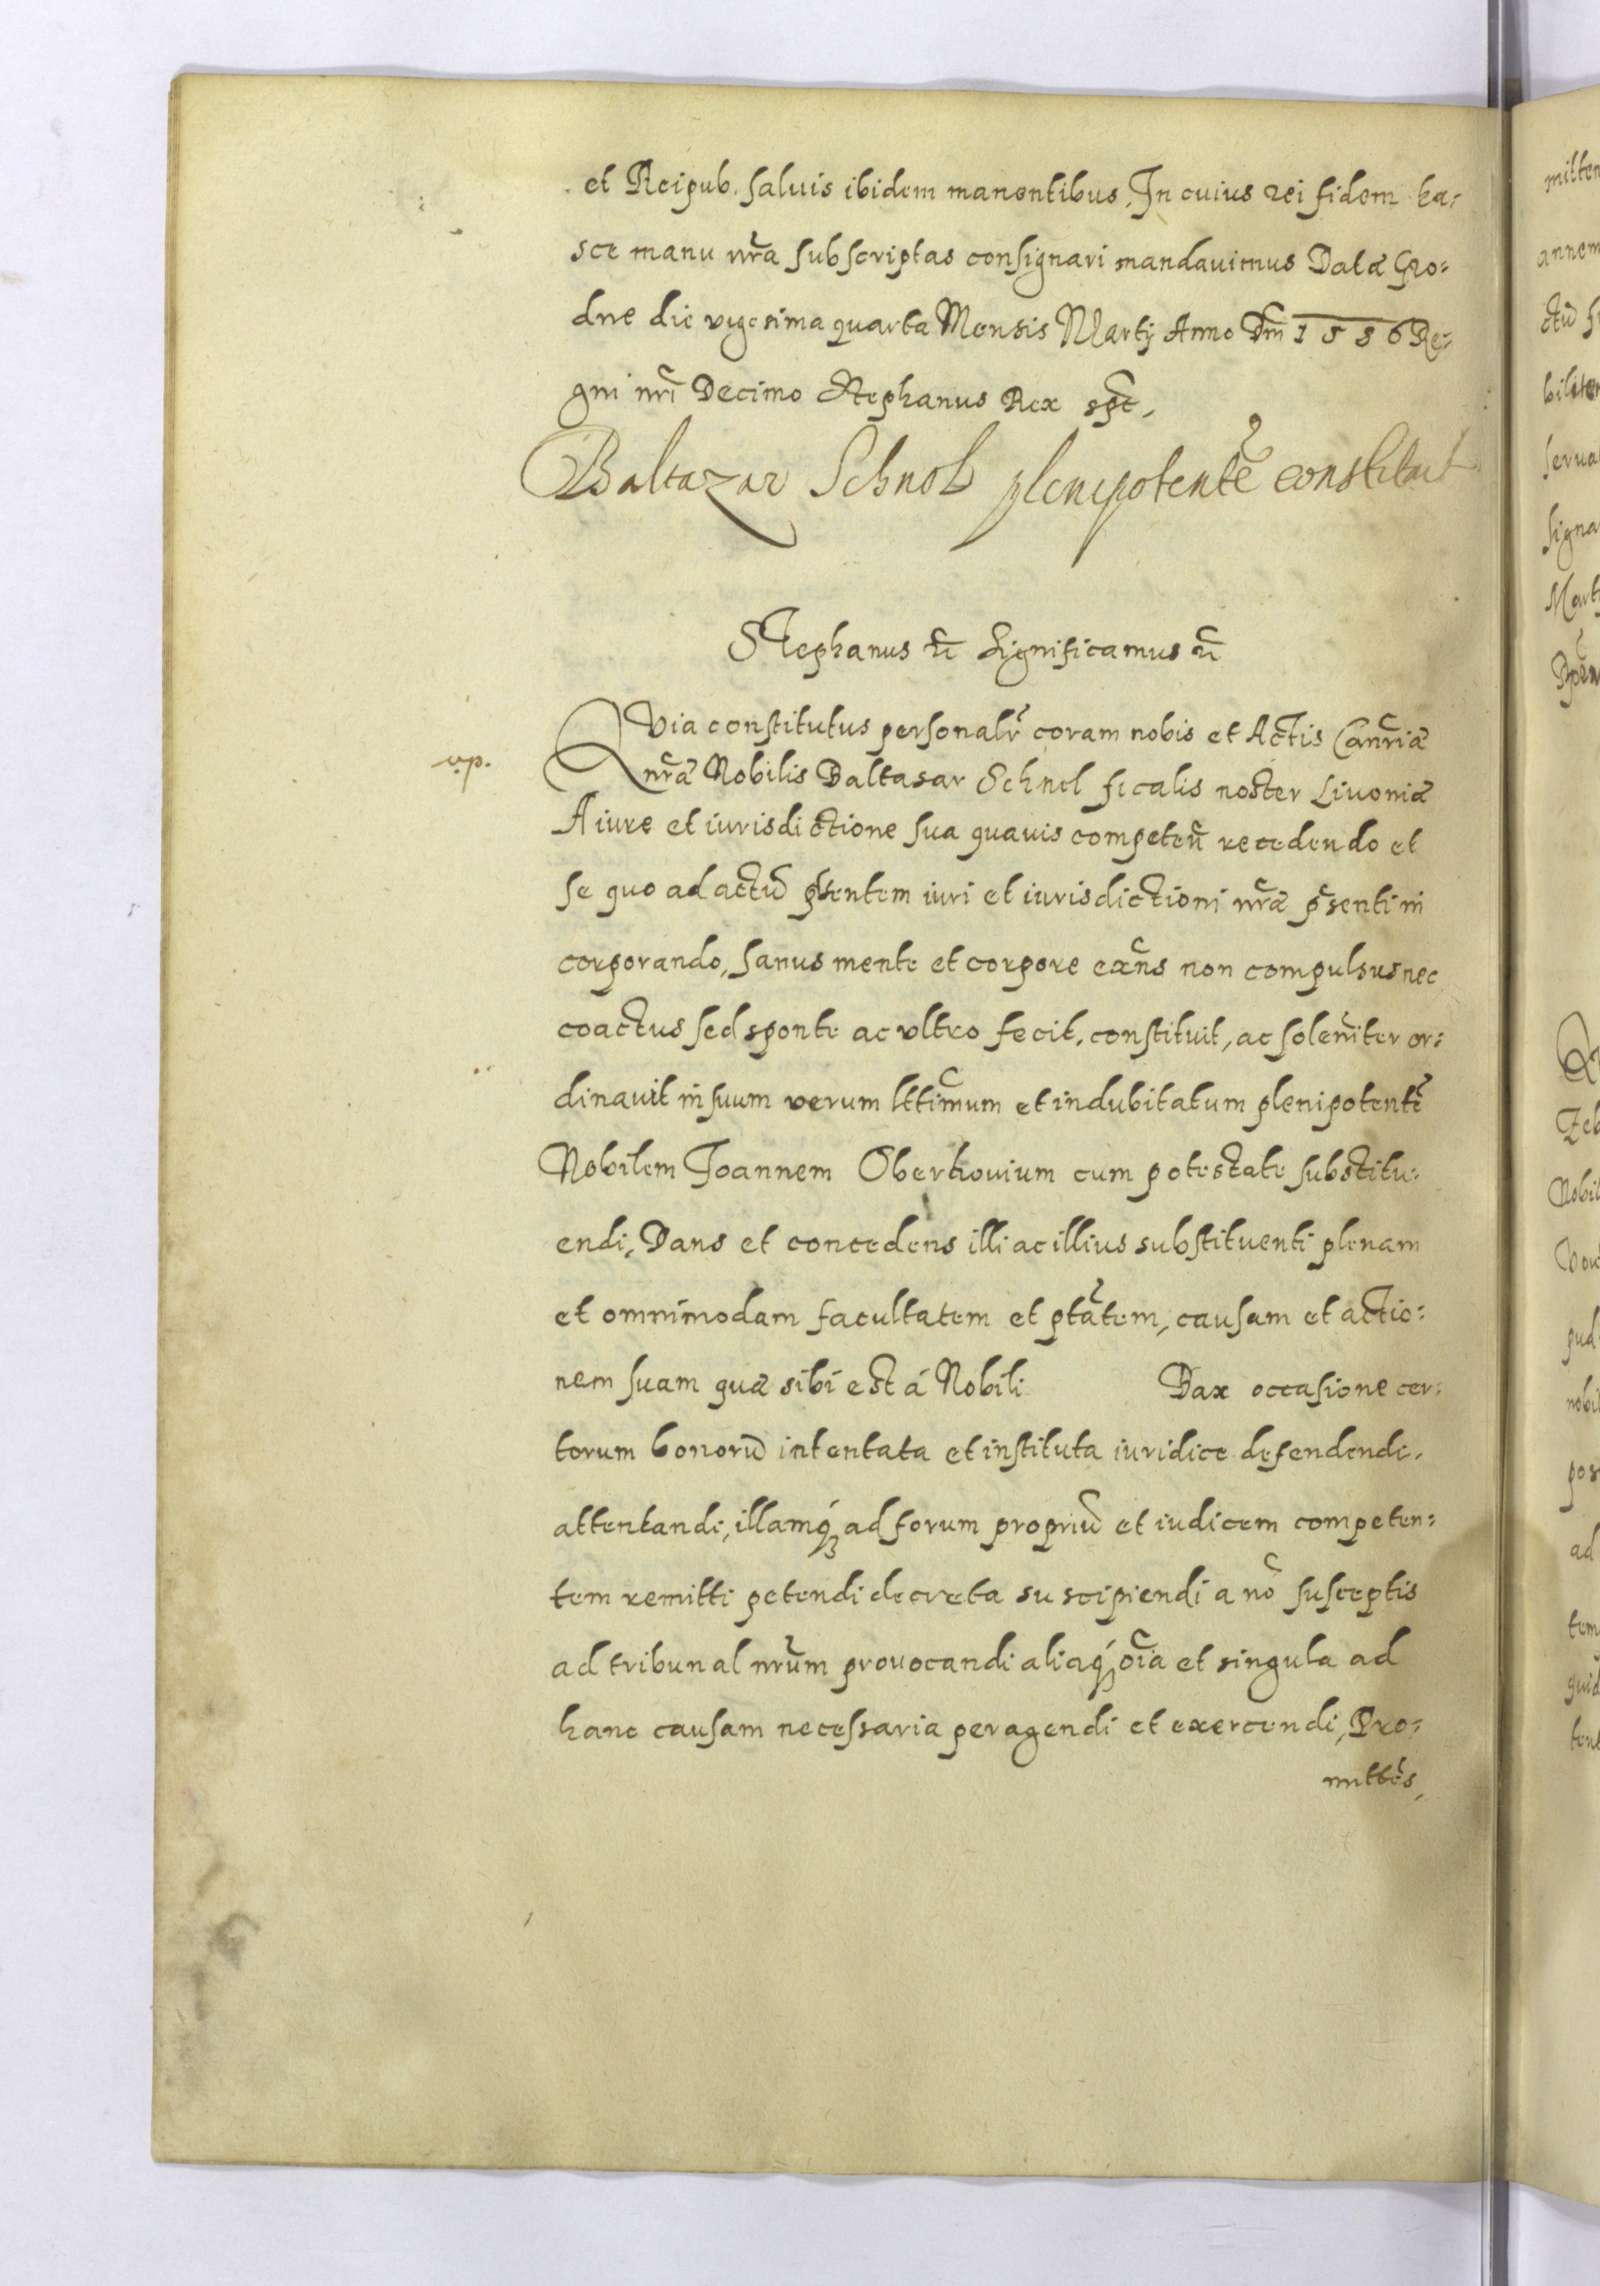 et Reipub. saluis ibidem manentibus. In cuius rei fidem ha-
sce manu nr̃a subscriptas consignari mandauimus Datæ Gro-
dne die vigesima quarta Mensis Martij Anno Dm̃ 1586 Re-
gni nr̃i Decimo Stephanus Rex spt̃.
Baltazar Schnol plenipotentẽ constituit
Stephanus &c̃ Significamus &c̃
v.p.
QVia constitutus personalr̃ coram nobis et Actis Canr̃iæ
nr̃æ Nobilis Baltasar Schnel ficalis noster Livoniæ
A iure et iurisdictione sua quavis competen̄ recedendo et
se quo ad actũ pr̃sentem iuri et iurisdictioni nr̃æ pr̃senti in
corporando, sanus mente et corpore exñs non compulsus nec
coactus sed sponte ac vltro fecit, constituit, ac solem̃iter or-
dinavit in suum verum lttĩmum et indubitatum plenipotentẽ
Nobilem Ioannem Obertrovium cum potestate substitu-
endi, Dans et concedens illi ac illius substituenti plenam
et omnimodam facultatem et ptãtem, causam et actio-
nem suam quæ sibi est á Nobili Dax occasione cer-
torum bonorũ intentata et instituta iuridice defendendi.
attentandi, illamq́ꝫ ad forum propriũ et iudicem competen-
tem remitti petendi decreta suscipiendi a nõ susceptis
ad tribunal nr̃um provocandi aliaq́ꝫ oĩa et singula ad
hanc causam necessaria peragendi et exercendi, Pro-
mittẽs,
milten
annem
ctũ
serua
signa
Mart
Nobil
pud
nobil
pos
ad
tem
quid